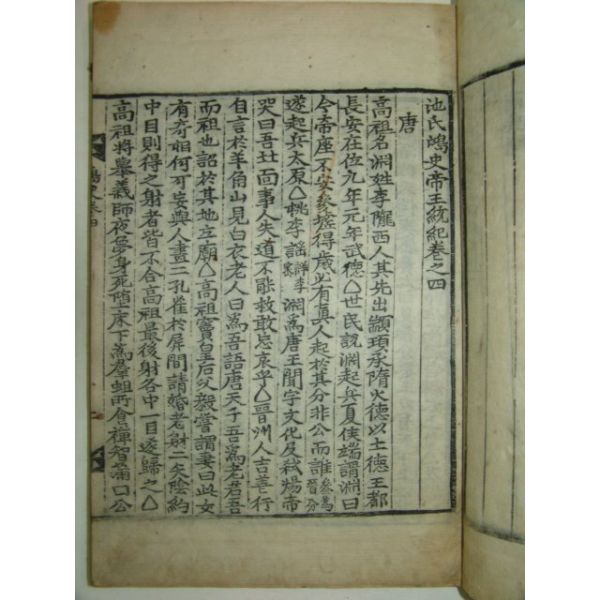 池氏鴻史帝王統紀卷之四
唐
高祖名淵姓李隴西人其先出顓頊承隋火德以土德王都
長安在位九年元年武德△世民說淵起兵夏侯端謂淵曰
今帝座不安參墟得歲必有真人起於其分非公而誰參為晉分
遂起兵太原△桃李謠詳李密淵為唐王聞宇文化及弒煬帝
哭曰吾北面事人失道不能救敢忘哀乎△晉州人吉善行
自言於羊角山見白衣老人曰為吾語唐天子吾為老君吾
而祖也詔於其地立廟△高祖竇皇后父毅嘗謂妻曰此女
有奇相何可妄與人畫二孔雀於屏間請婚者射二矢陰約
中目則得之射者皆不合高祖最後射各中一目遂歸之△
高祖將舉義師夜夢身死墮床下為群蛆所食禪智滿曰公
鴻史卷四